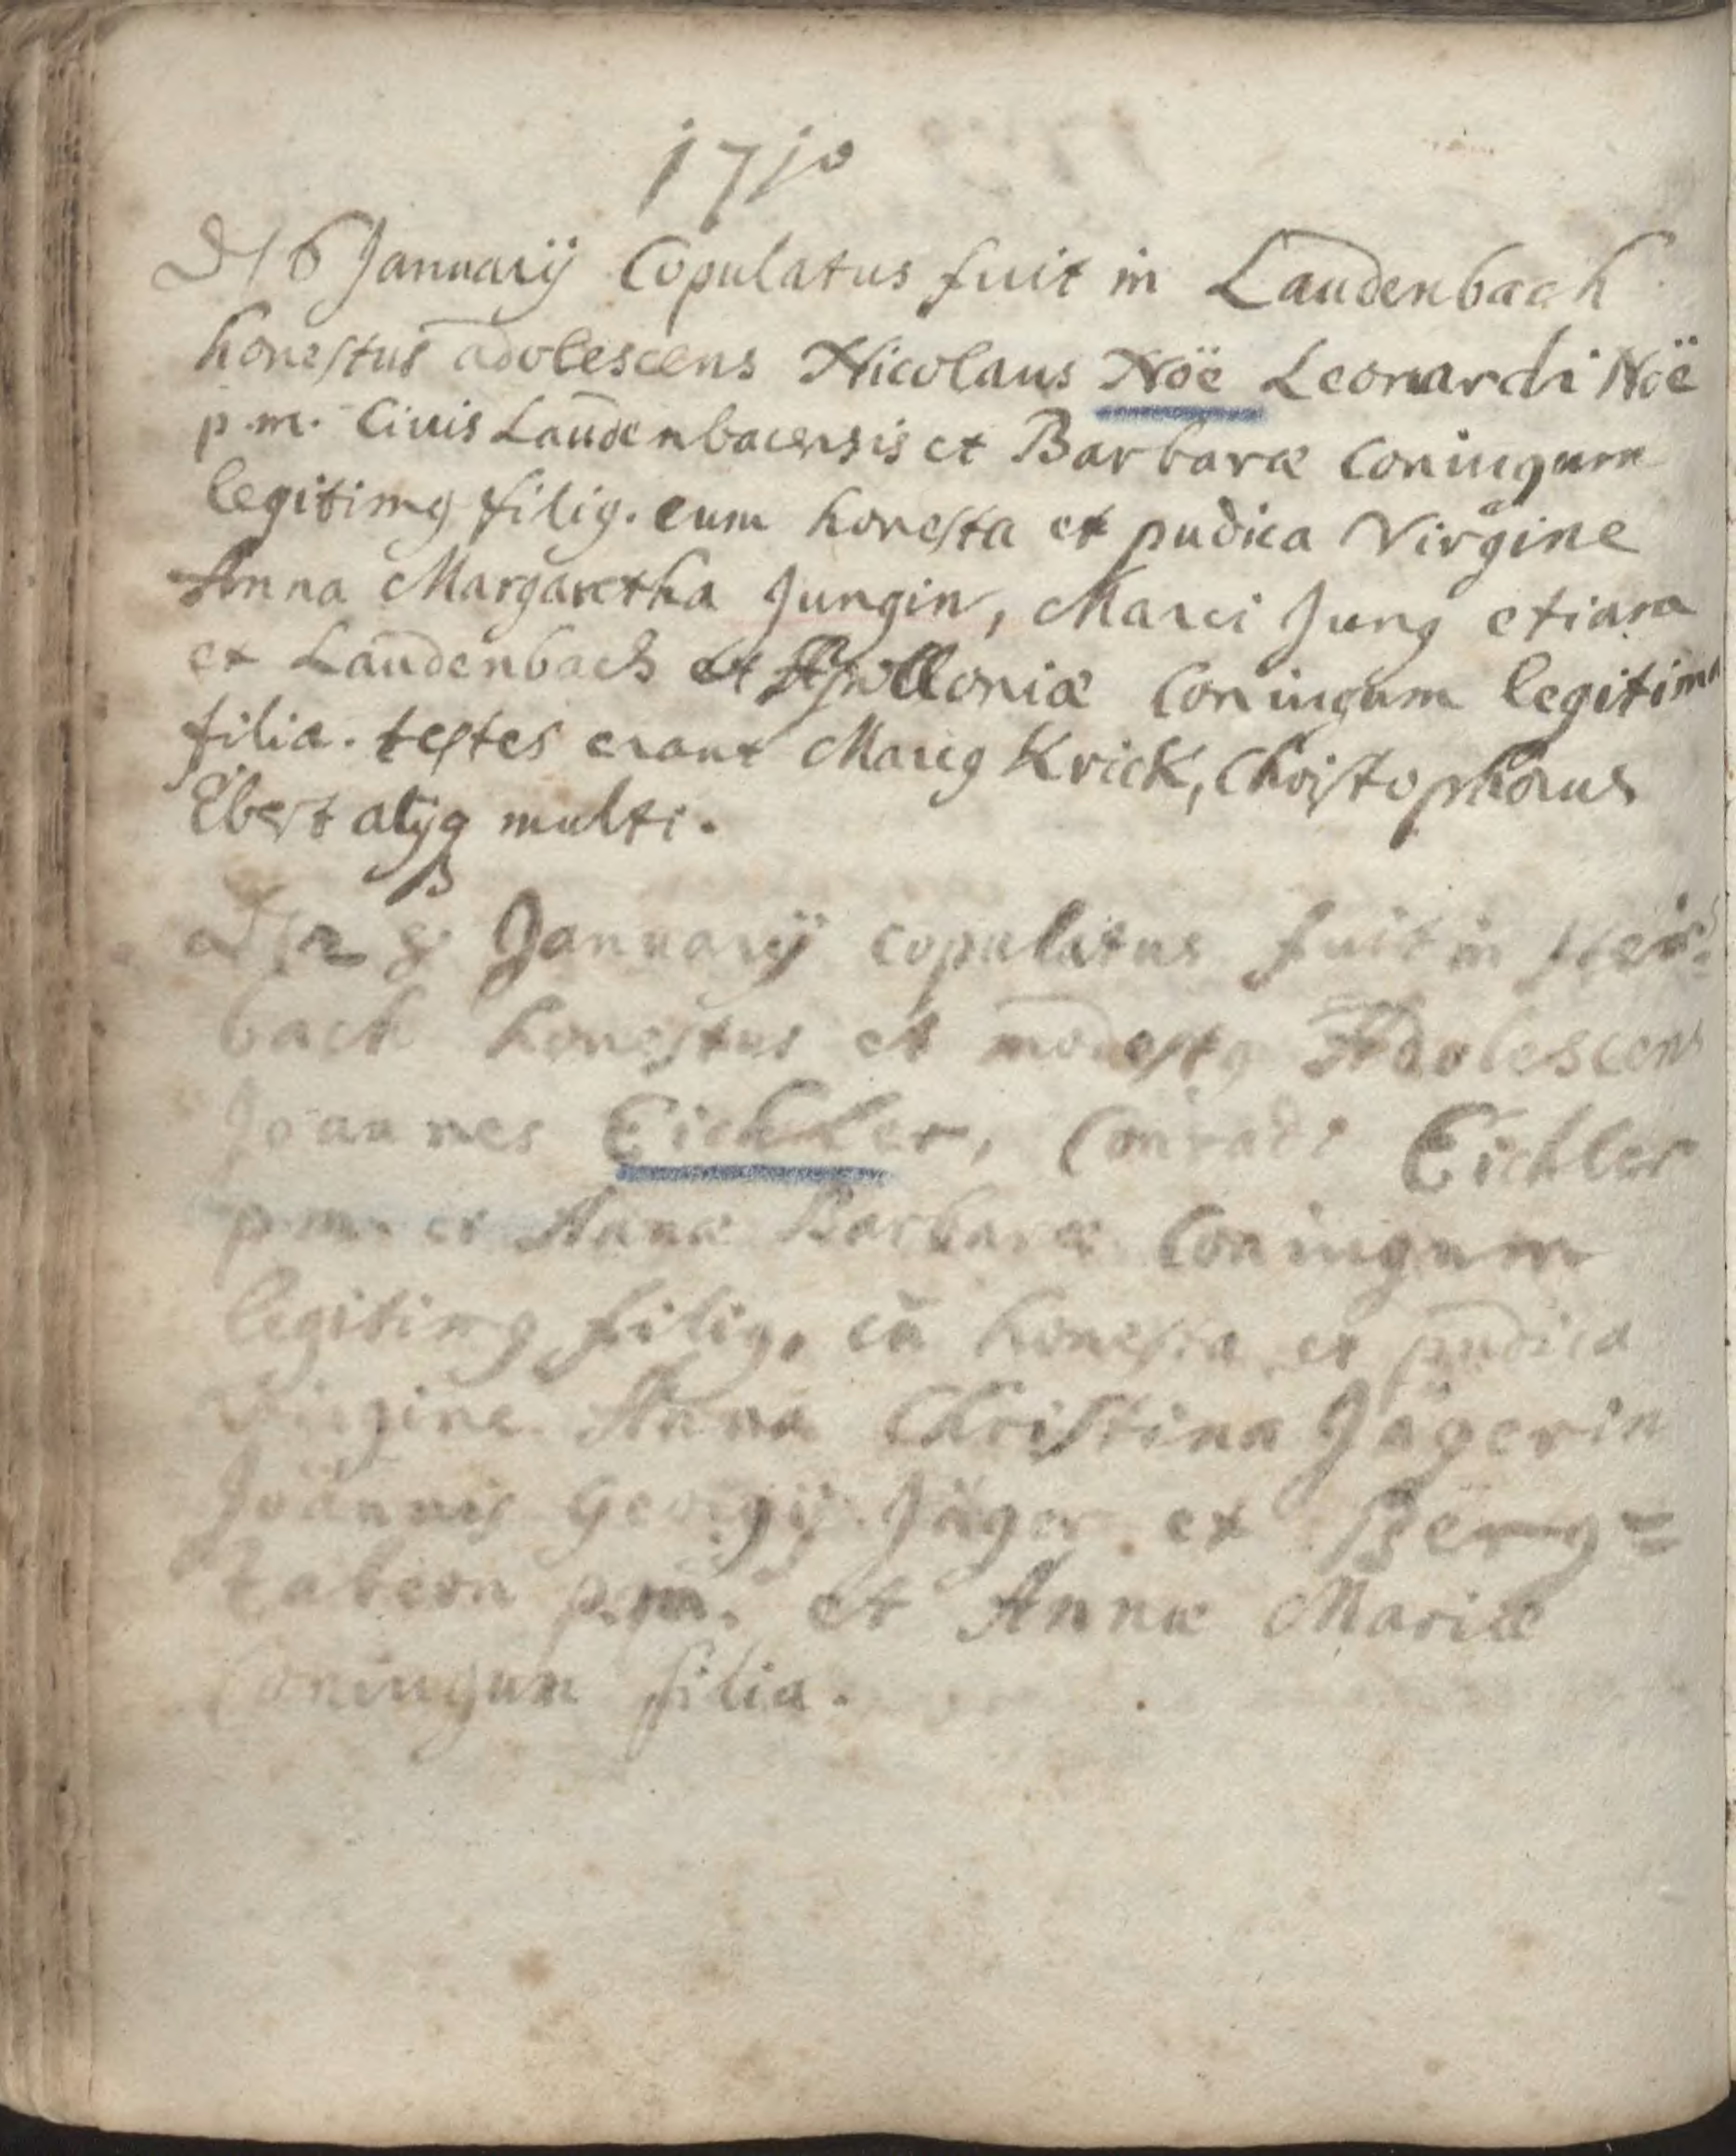 1710
D 16 Januarij Copulatus fuit in Laudenbach
honestus adolescens Nicolaus Noë Leonardi Noë
p.m. Civis Laudenbacensis et Barbaræ Coniugum
legitimꝯ filiꝯ. cum honesta et pudica Virgine
Anna Margaretha Jungin, Marci Jung etiam
ex Laudenbach et Apolloniæ Coniugum legitima
filia. testes erant Marcꝯ Krick, Christophorus
Ebert alijq multi.
Januarij copulatus fuit in
bach honestus et modestꝯ Adolescens
Joannes Eichler, Conradi Eichler
p.m. et Annæ Barbaræ Coniugum
legitimꝯ filiꝯ, cū honesta et pudica
Virgine Anna Christina Jägerin
Joannis Georgij Jäger ex Berg=
tabern p.m. et Annæ Mariæ
Coniugum filia.